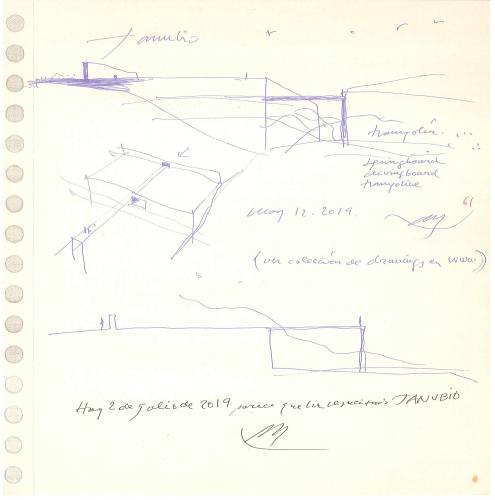 Janubio
trampolín. ...
springboard
divingboard
trampoline
May 12. 2019.
61
(ver colección de drawings en www)
Hoy 2 de Julio de 2019 parece que lo JANUBIO